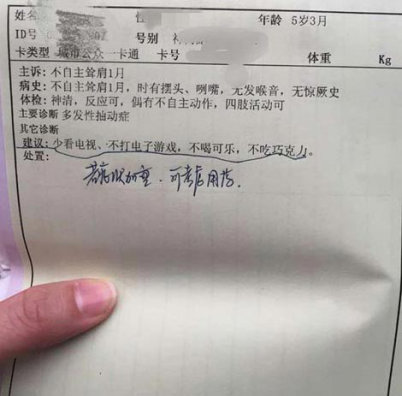 姓名 性 年龄 5岁3月
ID号 号别
卡类型 城市公众一卡通 卡号 体重 Kg
主诉: 不自主耸肩1月
病史: 不自主耸肩1月, 时有摆头、咧嘴, 无发喉音, 无惊厥史
体检: 神清, 反应可, 偶有不自主动作, 四肢活动可
主要诊断 多发性抽动症
其它诊断
建议: 少看电视、不打电子游戏, 不喝可乐, 不吃巧克力。
处置:
若症状加重, 可考虑用药.